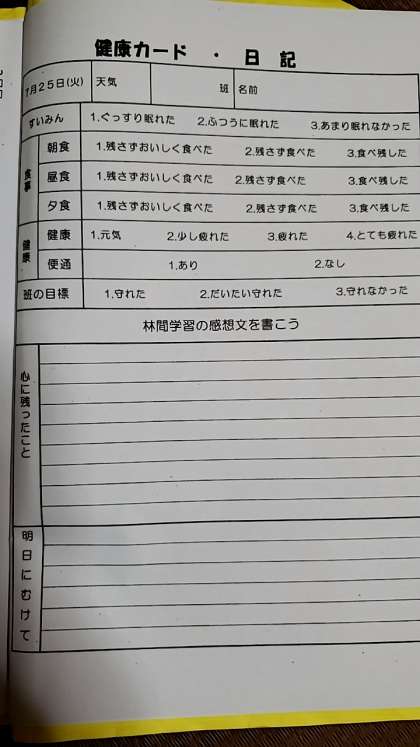 健康カード ・ 日 記
7月25日(火) 天気 班 名前
すいみん 1.ぐっすり眠れた 2.ふつうに眠れた 3.あまり眠れなかった
食事
朝食 1.残さずおいしく食べた 2.残さず食べた 3.食べ残した
昼食 1.残さずおいしく食べた 2.残さず食べた 3.食べ残した
夕食 1.残さずおいしく食べた 2.残さず食べた 3.食べ残した
健康
健康 1.元気 2.少し疲れた 3.疲れた 4.とても疲れた
便通 1.あり 2.なし
班の目標 1.守れた 2.だいたい守れた 3.守れなかった
林間学習の感想文を書こう
心に残ったこと
明日にむけて